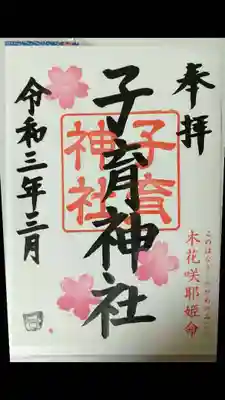 奉拝
子育神社
子育
神社
このはなさくやひめのみこと
木花咲耶姫命
令和三年三月